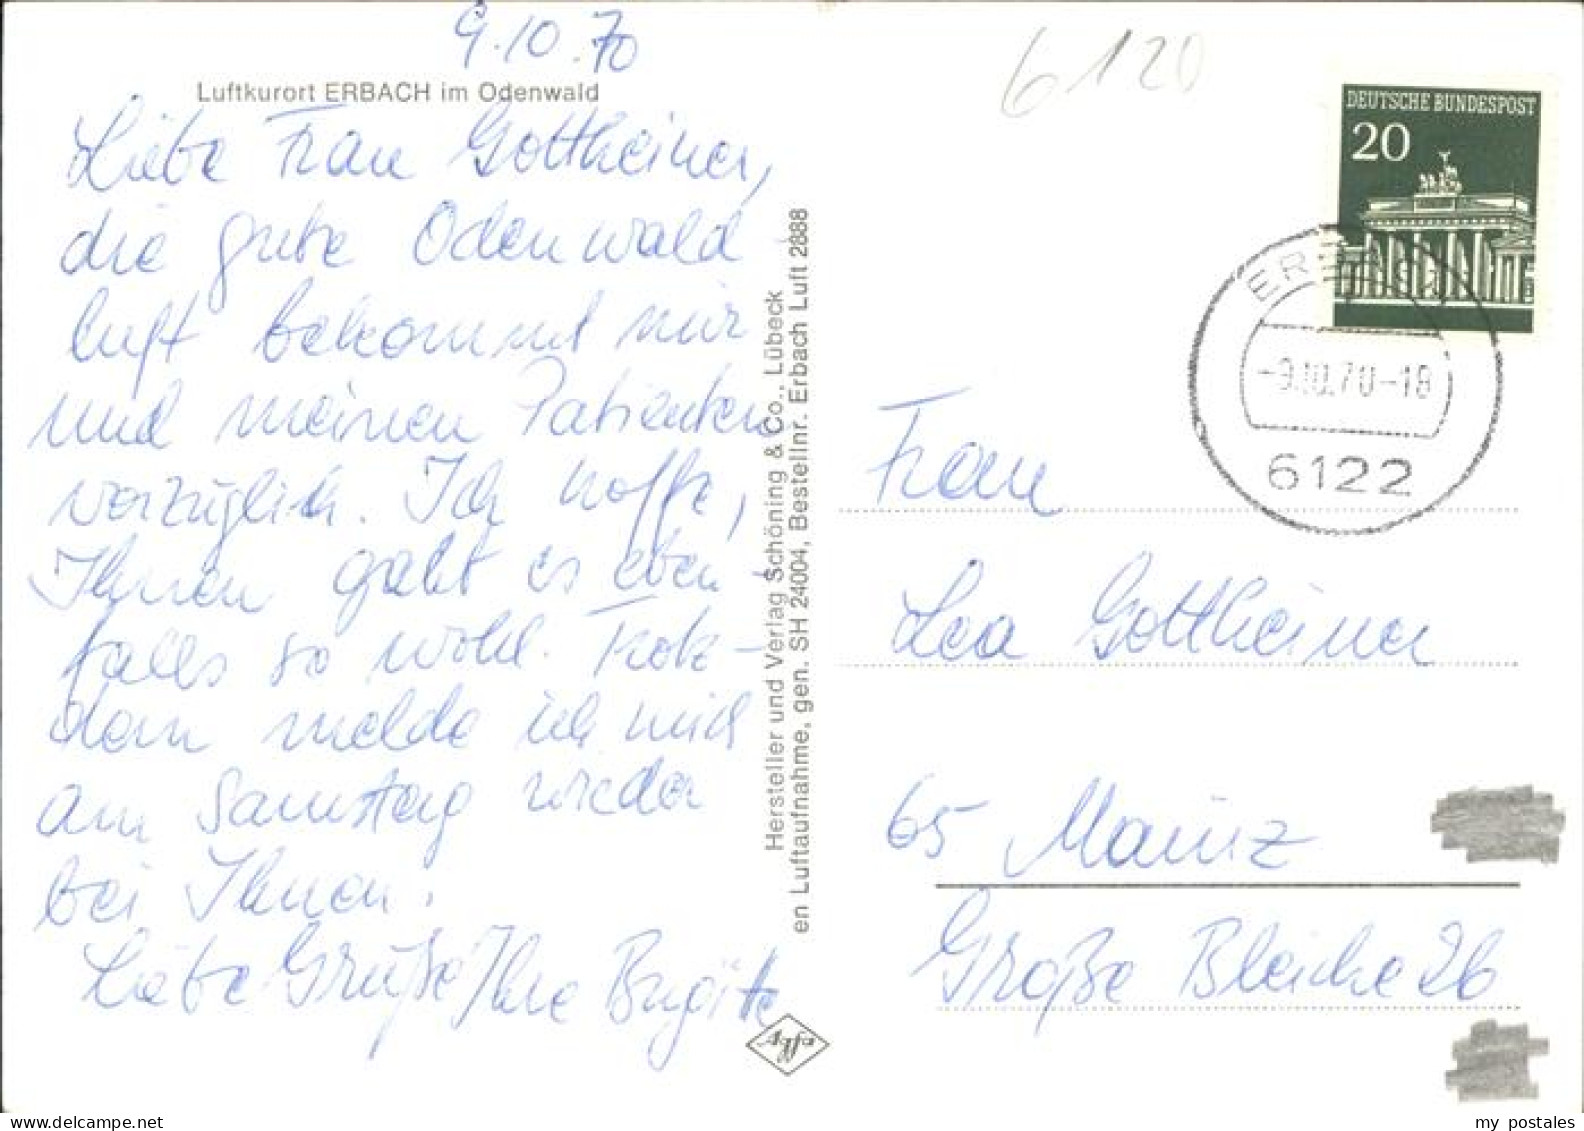 9.10.70
Luftkurort ERBACH im Odenwald
Liebe Frau Gottheiner,
die gute Odenwald
luft bekommt mir
und meinen Patienten
vorzüglich. Ich hoffe,
Ihnen geht es eben-
falls so wohl. Trotz-
dem melde ich mich
am Samstag wieder
bei Ihnen.
Liebe Grüße Ihre Brigitte
Hersteller und Verlag Schöning & Co., Lübeck
en Luftaufnahme, gen. SH 24004, Bestellnr. Erbach Luft 2888
6120
DEUTSCHE BUNDESPOST
20
ERBACH
-9.10.70-18
6122
Frau
Lea Gottheiner
65 Mainz
Große Bleiche 26
my postales